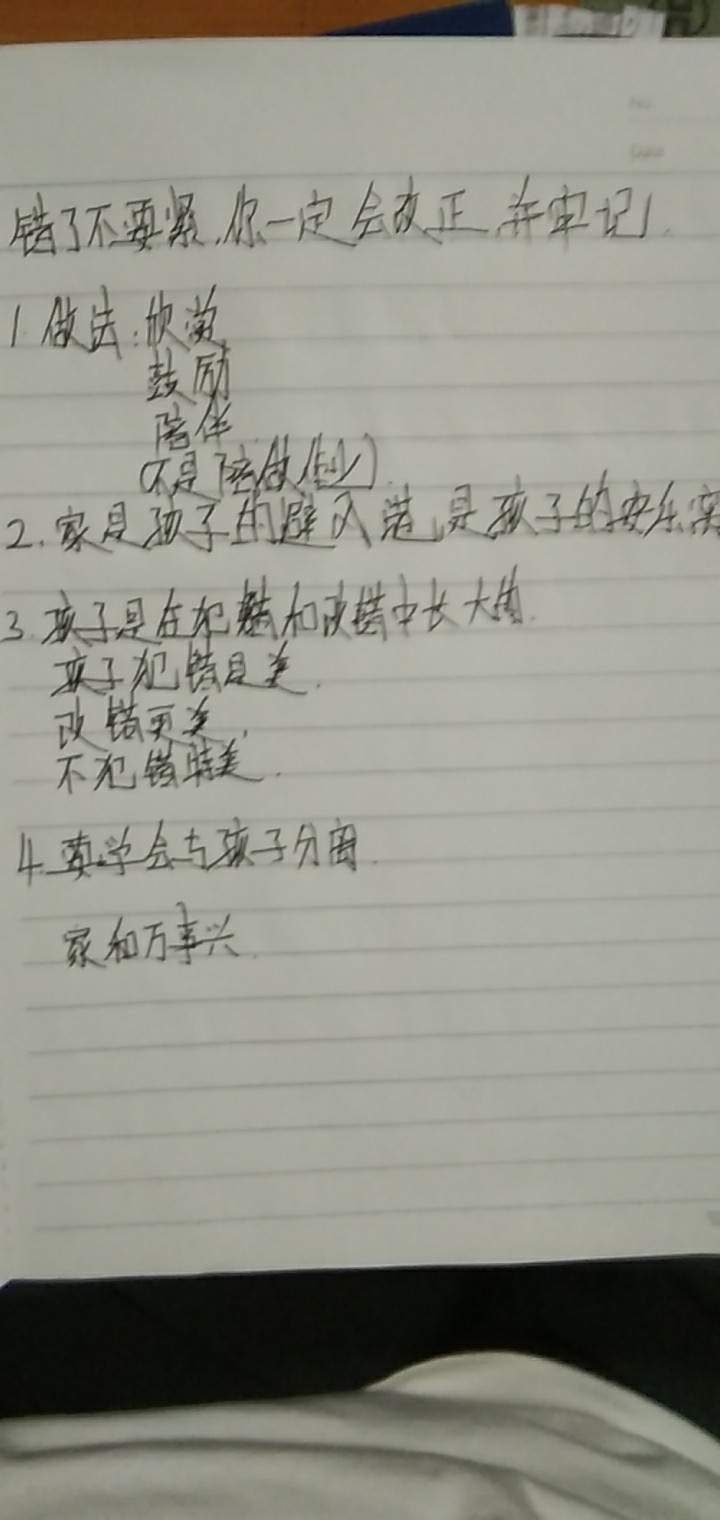 No.
Date
错了不要紧,你一定会改正,并牢记!
1. 做法:欣赏
鼓励
陪伴
(不是陪做作业)
2. 家是孩子的避风港,是孩子的安乐窝
3. 孩子是在犯错和改错中长大的.
孩子犯错是美.
改错更美,
不犯错特美.
4. 要学会与孩子分离.
家和万事兴.